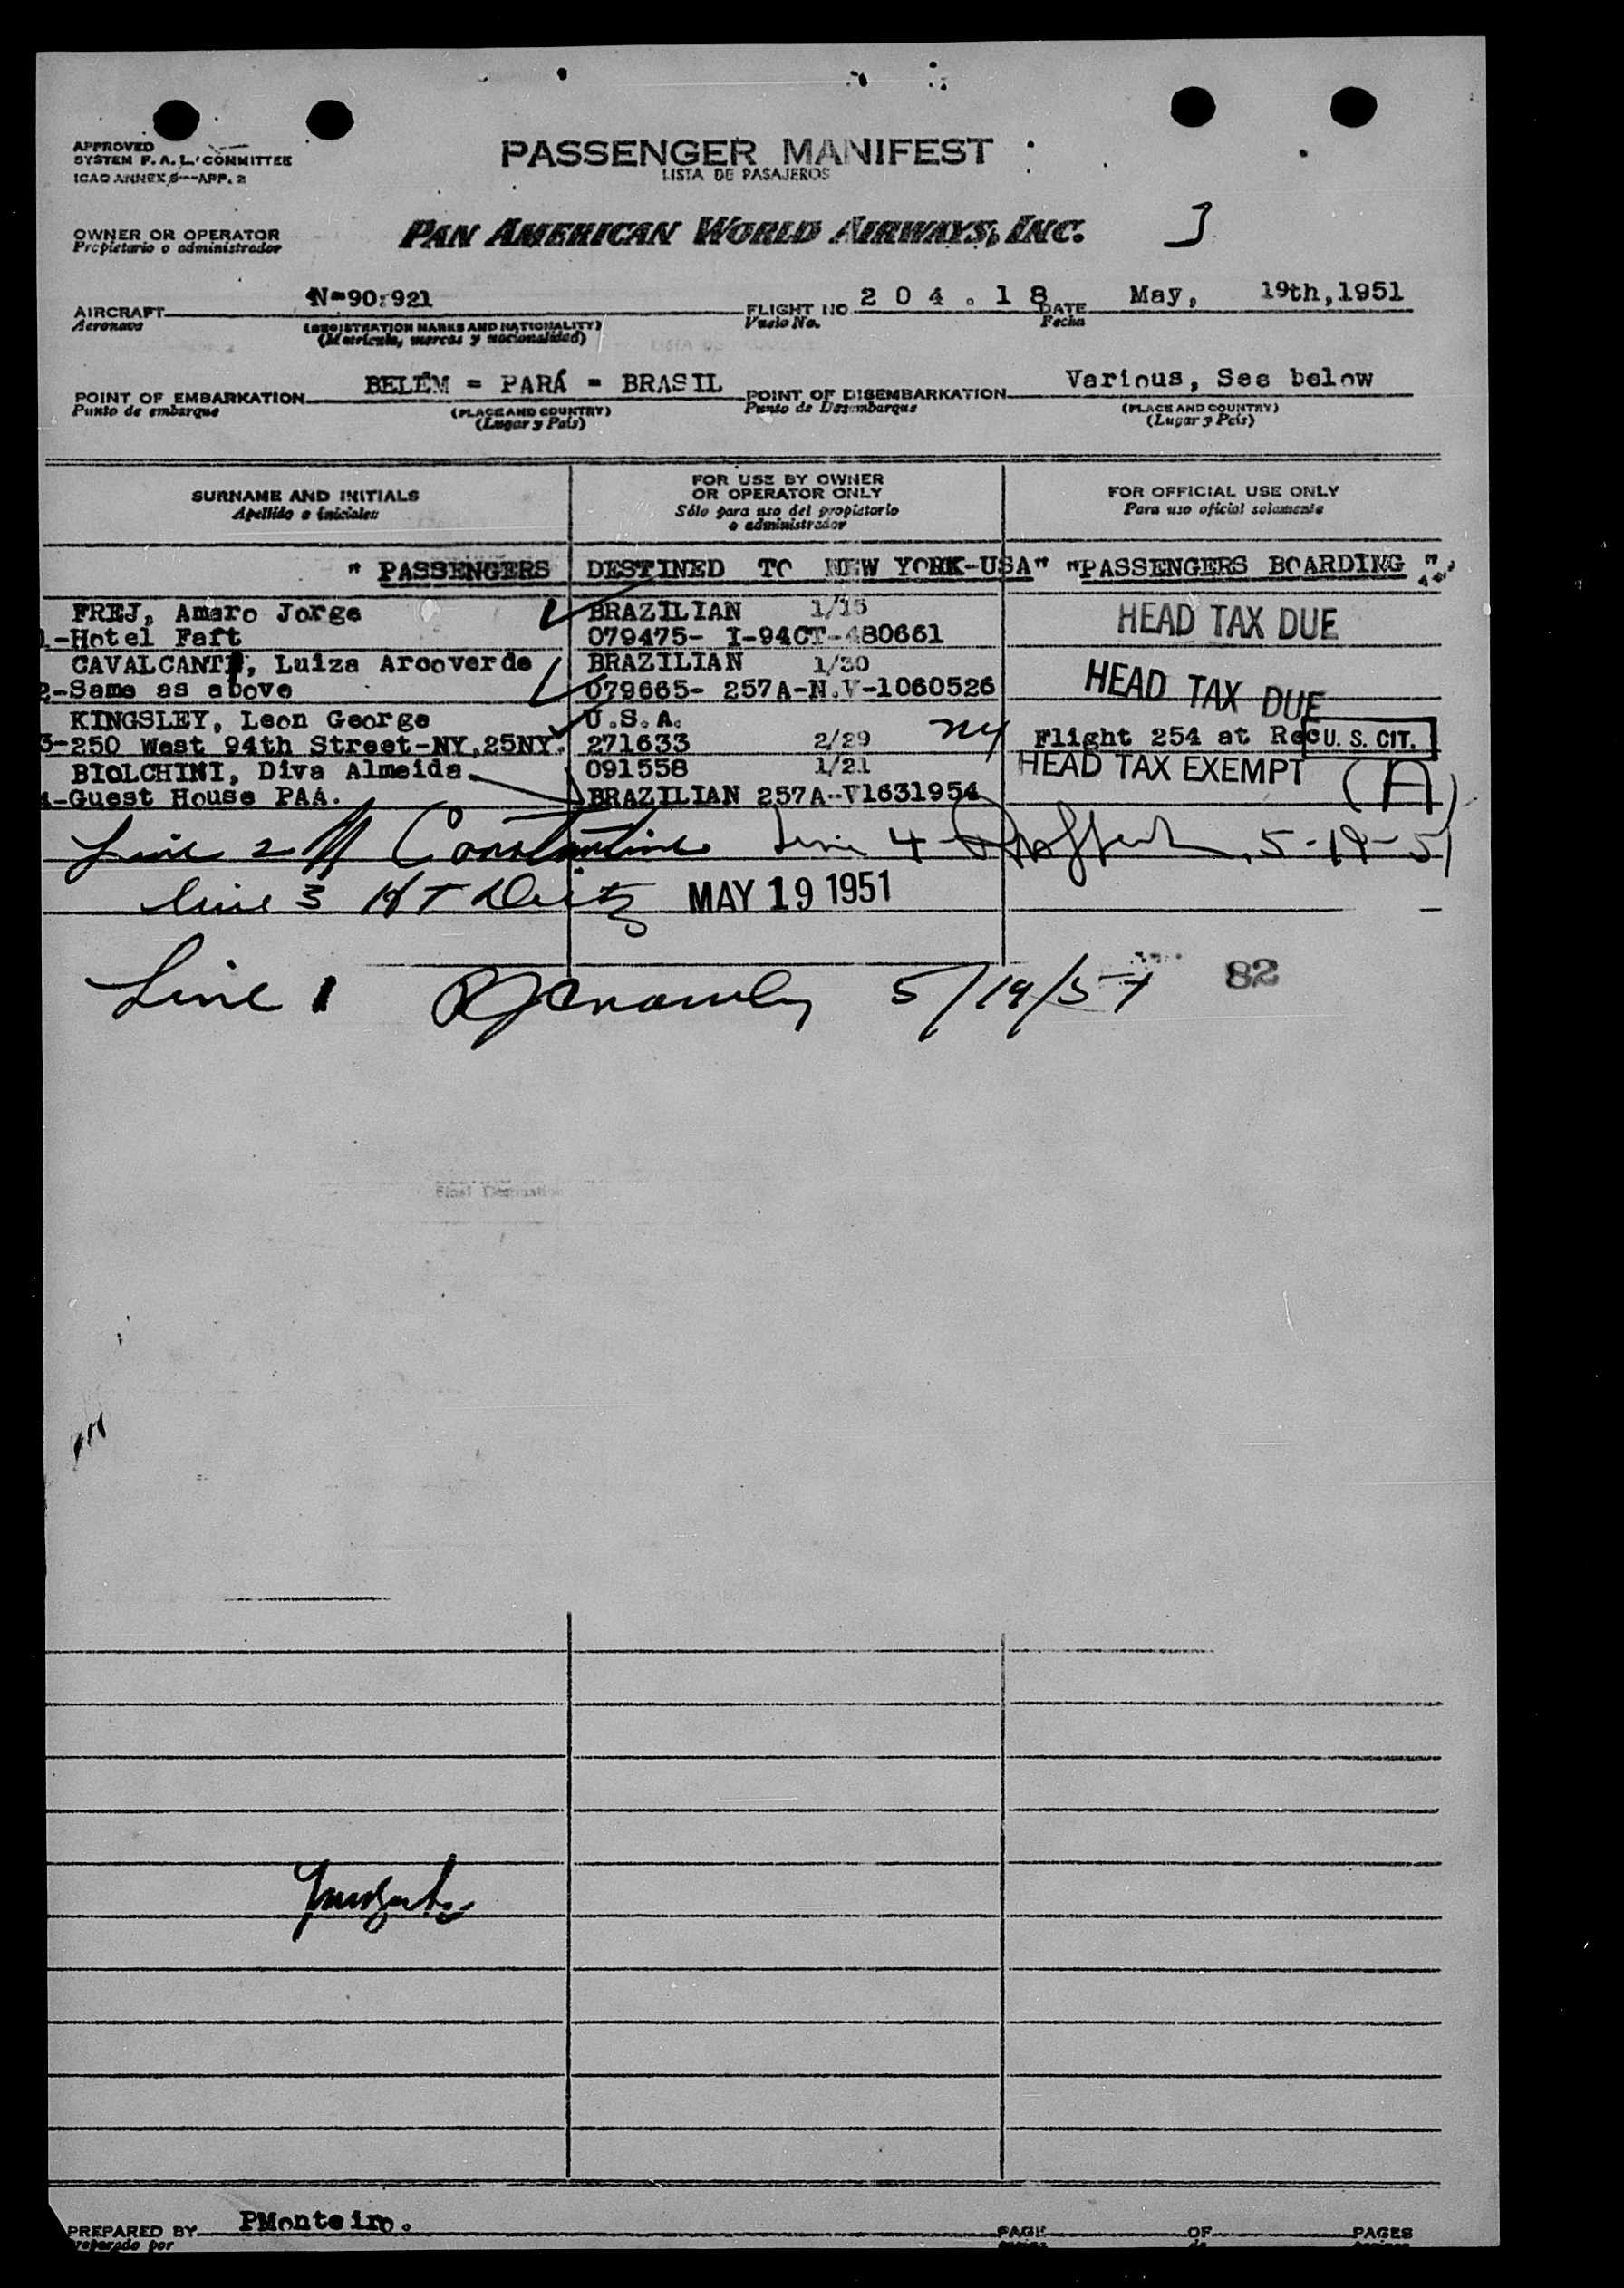 APPROVED
SYSTEM F. A. L. COMMITTEE
ICAO ANNEX 9--APP. 2
PASSENGER MANIFEST
LISTA DE PASAJEROS
OWNER OR OPERATOR
Propietario o administrador
PAN AMERICAN WORLD AIRWAYS, INC.
AIRCRAFT N-90:921
Aeronave
(REGISTRATION MARKS AND NATIONALITY)
(Matricula, marcas y nacionalidad)
FLIGHT NO 204.18
Vuelo No.
DATE May, 19th,1951
Fecha
POINT OF EMBARKATION BELÉM = PARÁ = BRASIL
Punto de embarque
(PLACE AND COUNTRY)
(Lugar y País)
POINT OF DISEMBARKATION Various, See below
Punto de Desembarque
(PLACE AND COUNTRY)
(Lugar y País)
SURNAME AND INITIALS
Apellido e iniciales
FOR USE BY OWNER
OR OPERATOR ONLY
Sólo para uso del propietario
o administrador
FOR OFFICIAL USE ONLY
Para uso oficial solamente
" PASSENGERS DESTINED TO NEW YORK-USA" "PASSENGERS BOARDING "
FREJ, Amaro Jorge BRAZILIAN 1/15 HEAD TAX DUE
1.-Hotel Faft 079475- I-94CT-480661
CAVALCANTI, Luiza Arcoverde BRAZILIAN 1/30 HEAD TAX DUE
2-Same as above 079665- 257A-N.V-1060526
KINGSLEY, Leon George U.S.A.
3-250 West 94th Street-NY,25NY. 271633 2/29 NY Flight 254 at Rec U. S. CIT.
BIOLCHINI, Diva Almeida 091558 1/21 HEAD TAX EXEMPT (A)
4-Guest House PAA. BRAZILIAN 257A--V1631954
Line 2 Constantine Line 4 5-19-51
Line 3 MAY 19 1951
Line 1 5/19/51 82
PREPARED BY PMonteiro.
Preparado por
PAGE OF PAGES